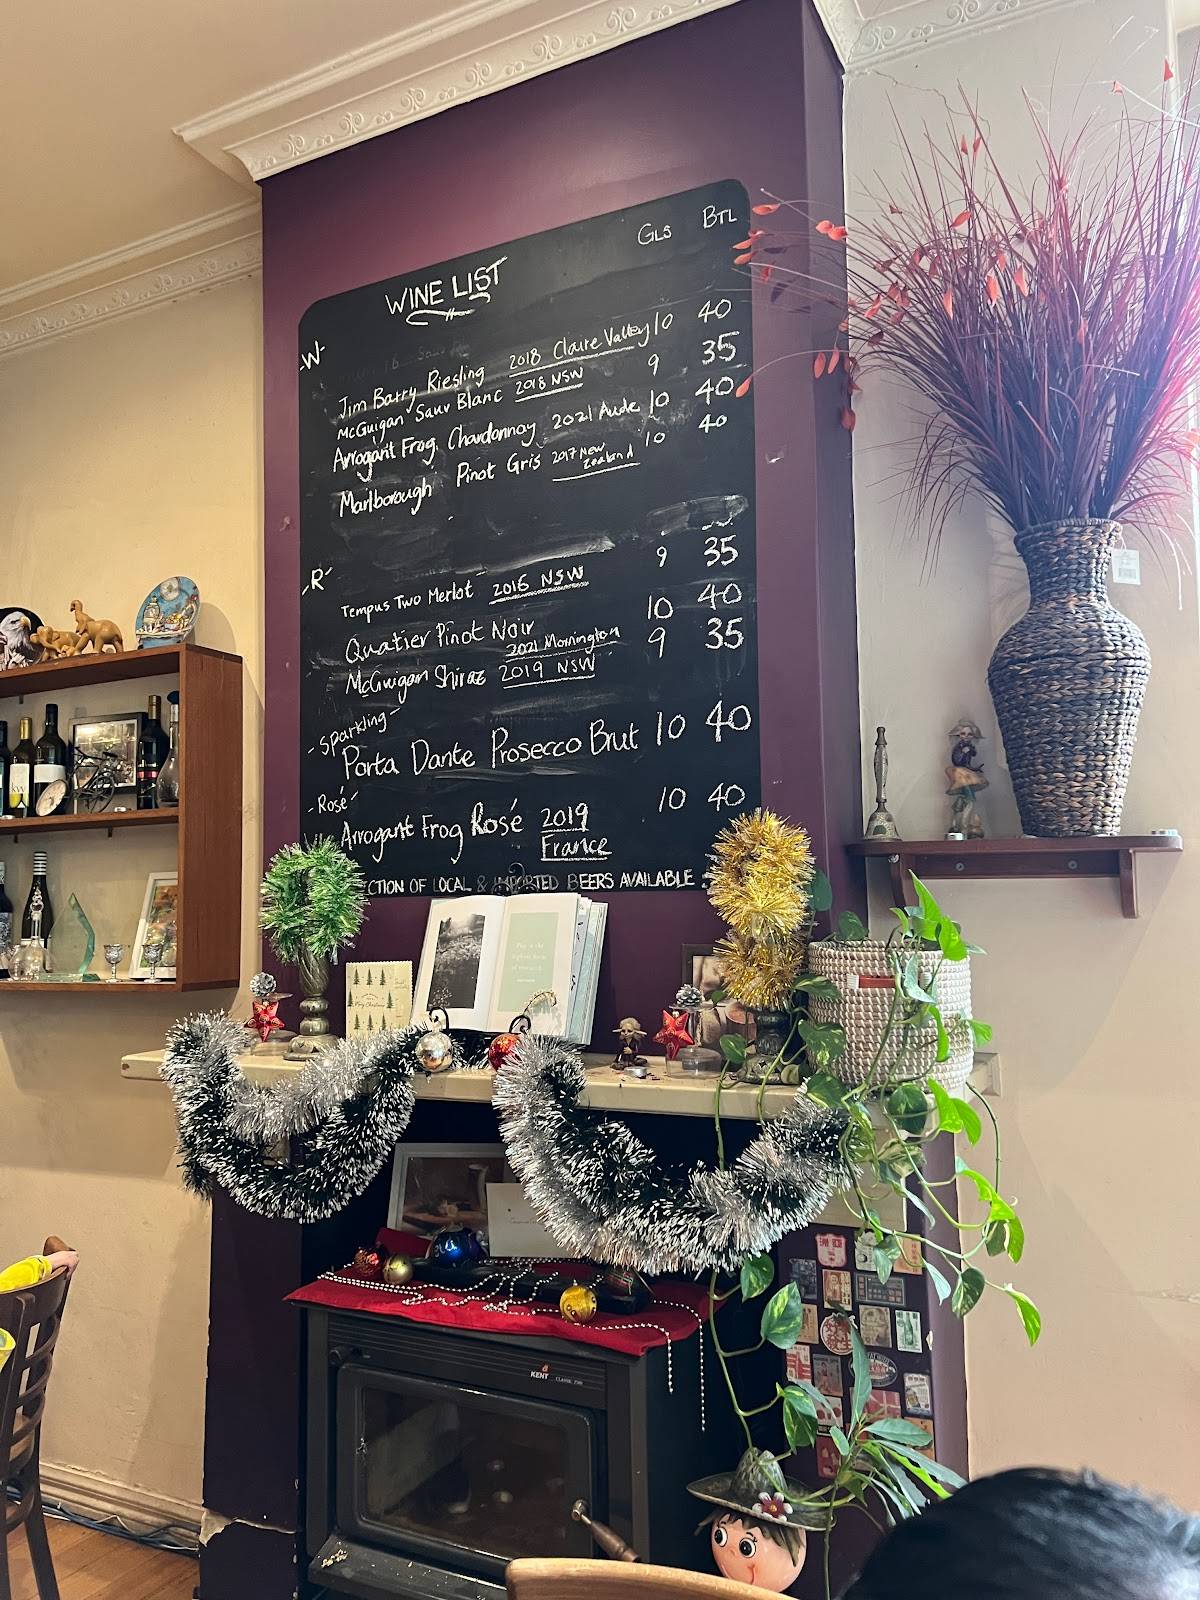 GLS BTL
WINE LIST
-W-
Jim Barry Riesling 2018 Claire Valley 10 40
McGuigan Sauv Blanc 2018 NSW 9 35
Arrogant Frog Chardonnay 2021 Aude 10 40
Marlborough Pinot Gris 2017 New Zealand 10 40
-R-
Tempus Two Merlot 2016 NSW 9 35
Quatier Pinot Noir 2021 Mornington 10 40
McGuigan Shiraz 2019 NSW 9 35
-Sparkling-
Porta Dante Prosecco Brut 10 40
-Rosé-
Arrogant Frog Rosé 2019 France 10 40
ECTION OF LOCAL & IMPORTED BEERS AVAILABLE
KENT